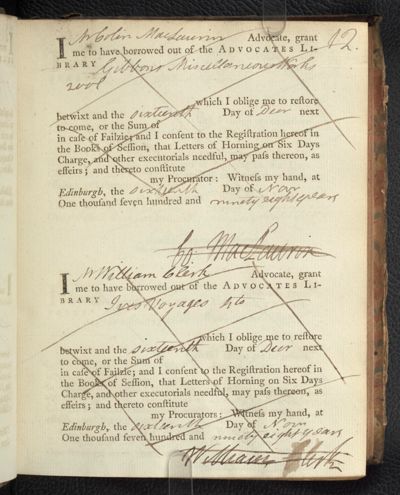 12.
I Mr Colin MacLaurin Advocate, grant
me to have borrowed out of the ADVOCATES LI-
BRARY Gibbons Miscellaneous Works
2 vols
which I oblige me to restore
betwixt and the sixteenth Day of Decr next
to come, or the Sum of
in case of Failzie; and I consent to the Registration hereof in
the Books of Session, that Letters of Horning on Six Days
Charge, and other executorials needful, may pass thereon, as
effeirs; and thereto constitute
my Procurator: Witness my hand, at
Edinburgh, the sixteenth Day of Novr
One thousand seven hundred and ninety eight years
Co. MacLaurin
I Mr William Clerk Advocate, grant
me to have borrowed out of the ADVOCATES LI-
BRARY Ives Voyages 4to
which I oblige me to restore
betwixt and the sixteenth Day of Decr next
to come, or the Sum of
in case of Failzie; and I consent to the Registration hereof in
the Books of Session, that Letters of Horning on Six Days
Charge, and other executorials needful, may pass thereon, as
effeirs; and thereto constitute
my Procurators: Witness my hand, at
Edinburgh, the sixteenth Day of Novr
One thousand seven hundred and ninety eight years
William Clerk